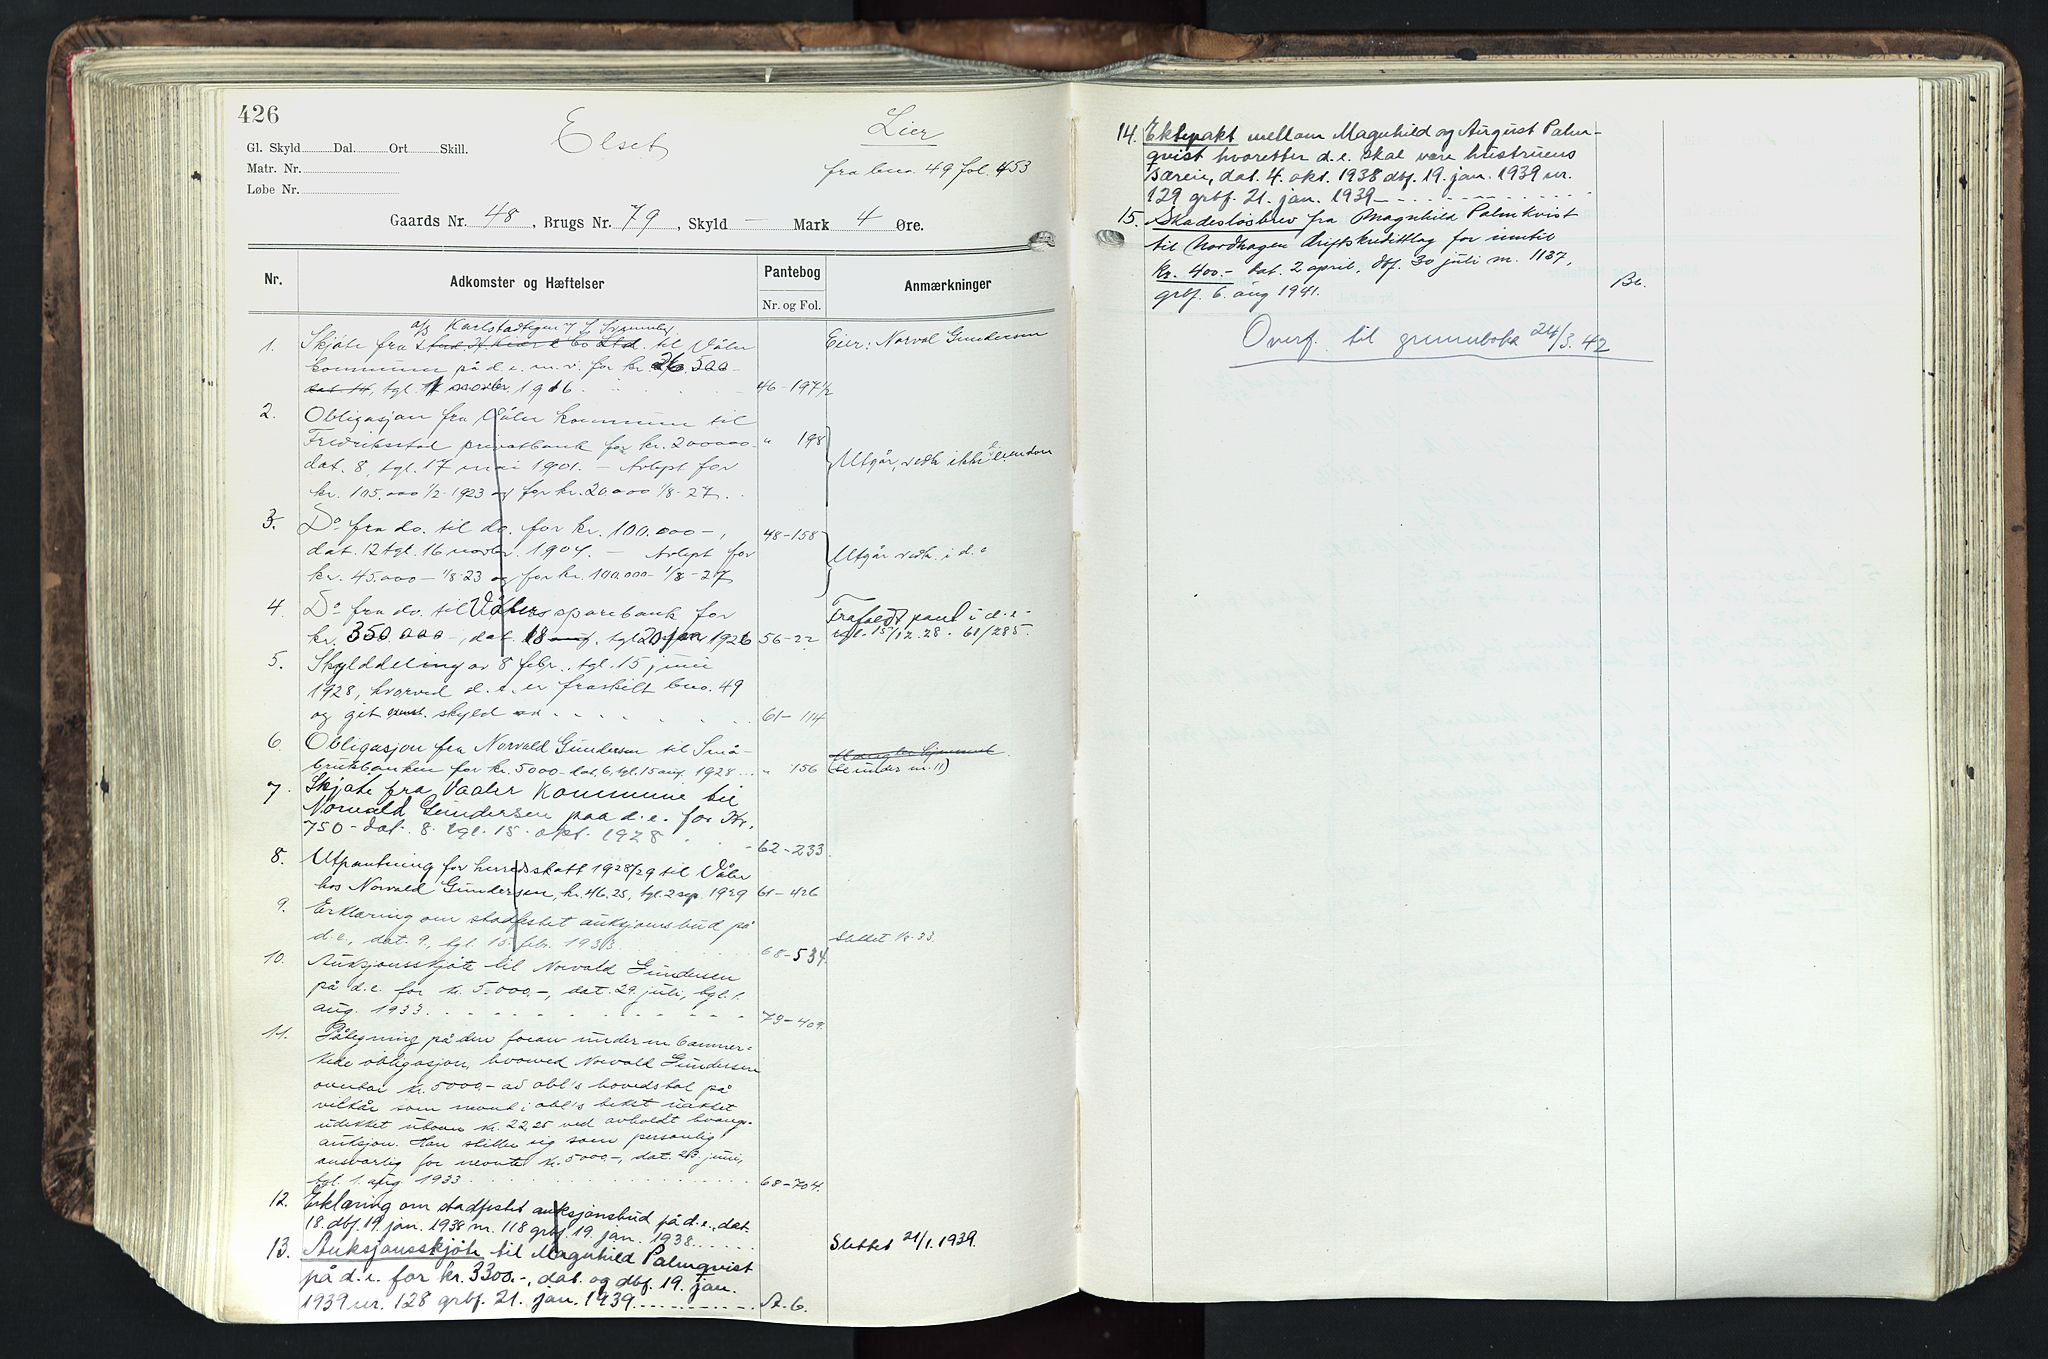 426
Elset
Lier
Gl. Skyld Dal. Ort Skill.
Matr. Nr.
Løbe Nr.
fra bno. 49 fol. 453
Gaards Nr. 48, Brugs Nr. 79, Skyld — Mark 4 Øre.
Nr.
Adkomster og Hæftelser
Pantebog
Nr. og Fol.
Anmærkninger
a/s Karlstadtigen
1. Skjøte fra And. H. Kiær & Co Ltd. til Våler
Eier: Norval Gundersen
kommune på d.e. m.v. for kr. 26.500
dat. 14, tgl. novbr 1916 46-197 1/2
2. Obligasjon fra Våler kommune til
Fredrikstad privatbank for kr. 200000 " 198
dat. 8, tgl. 17 mai 1901. — Avlept for
Utgår, vedk. ikke eiendom
kr. 105.000 1/2-1923 og for kr. 20.000 1/8-27.
3. Do fra do. til do. for kr. 100.000-, 48-158
dat. 12 tgl. 16 novbr. 1904. — Avlept for
Utgår vedk. i d.e
kr. 45.000 - 1/8-23 og for kr. 100.000 - 1/8-27
4. Do fra do. til Vålers sparebank for
Frafaldt pant i d.e.
kr. 350.000-, dat. 18 tgl. 20 jan 1926 56-22
tgl. 15/12.28. 61/285.
5. Skylddeling av 8 febr., tgl. 15 juni
1928, hvorved d.e. er fraskilt bno. 49
og git skyld 61-114
6. Obligasjon fra Norvald Gundersen til Små-
brukbanken for kr. 5000 - dat. 6, tgl. 15 aug. 1928 " 156
(Se under nr. 11)
7. Skjøte fra Vaaler Kommune til
Norvald Gundersen paa d.e. for Kr.
750 - dat. 8. tgl. 15. okt. 1928 62-233
8. Utpantning for herredsskatt 1928/29 til Våler
hos Norvald Gundersen, kr. 46.25, tgl. 2 sep. 1929 61-426
9. Erklæring om stadfestet auksjonsbud på
d.e., dat. 9, tgl. 15. febr. 1933 68-534.
Slettet
10. Auksjonsskjøte til Norvald Gundersen
på d.e. for kr. 5.000,-, dat. 29. juli, tgl. 1.
aug. 1933 79-409.
11. Påtegning på den foran under nr 6 anmer-
kede obligasjon, hvorved Norvald Gundersen
overtar kr. 5000,- av obl's hovedstol på
vilkår som nevnt i obl's
udekket utover kr. 22,25 ved avholdt tvangs-
auksjon. Han stiller sig som personlig
ansvarlig for nevnte kr. 5000,-, dat. 23. juni,
tgl. 1. aug. 1933 68-704.
12. Erklæring om stadfestet auksjonsbud på d.e., dat.
18. dbf. 19. jan. 1938 nr. 118 grbf. 19. jan. 1938
13. Auksjonsskjøte til Magnhild Palmqvist
Slettet 21/1.1939.
på d.e. for kr. 3300.-, dat. og dbf. 19. jan.
1939 nr. 128 grbf. 21. jan. 1939 A.6.
14. Ektepakt mellom Magnhild og August Palm-
qvist hvoretter d.e. skal være hustruens
særeie, dat. 4. okt. 1938 dbf. 19. jan. 1939 nr.
129 grbf. 21. jan. 1939
15. Skadesløsbrev fra Magnhild Palmkvist
til Nordhagen driftskredittlag for inntil
kr. 400.- dat. 2 april, dbf. 30 juli nr. 1187, B6.
grbf. 6. aug 1941.
Overf. til grunnboka 24/3.42